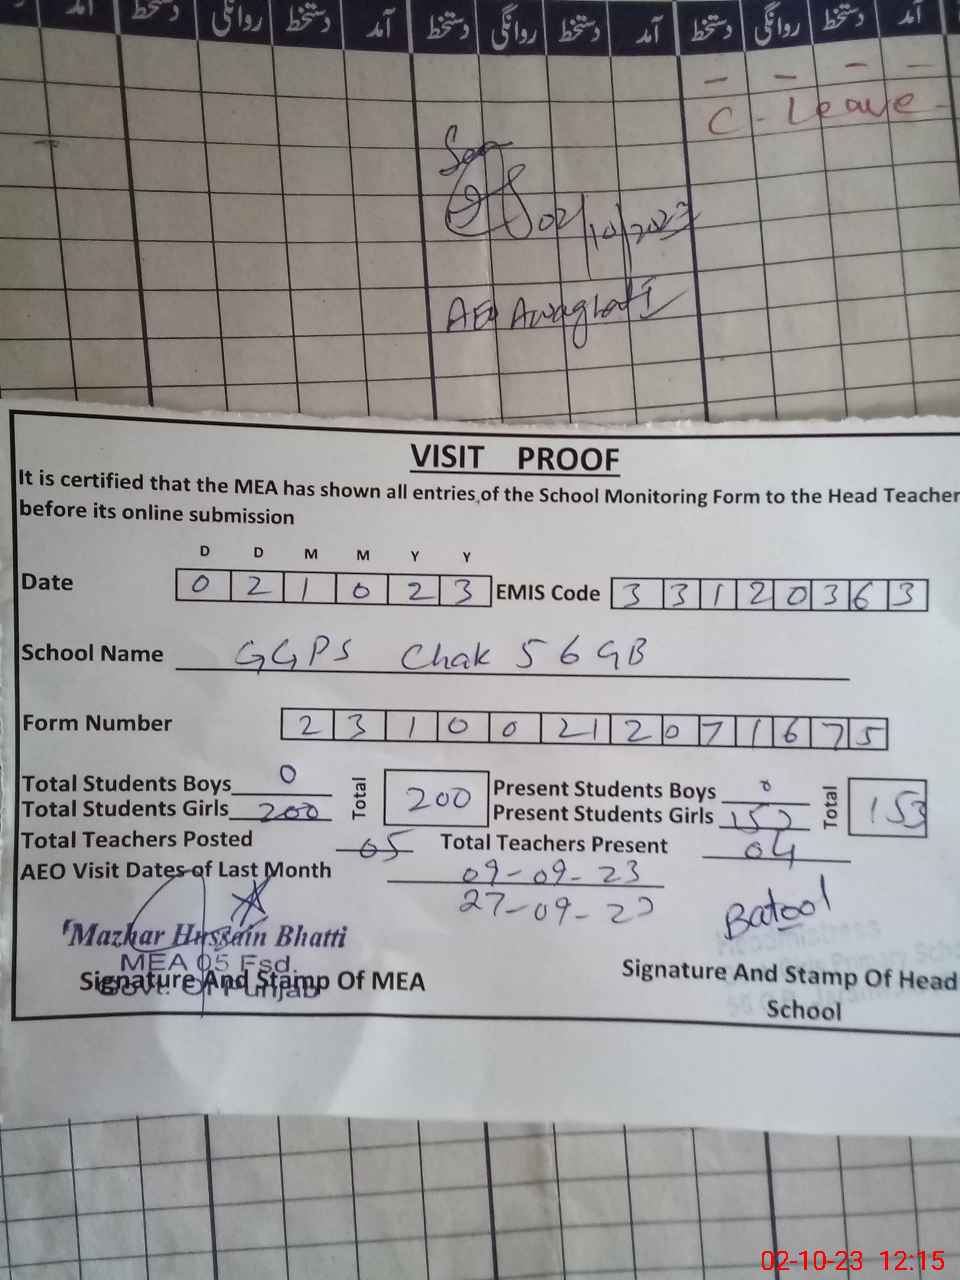 آمد دستخط روانگی دستخط آمد دستخط روانگی دستخط آمد دستخط روانگی دستخط آمد
C - Leave -
02/10/2023
AEO Awaghat I
VISIT PROOF
It is certified that the MEA has shown all entries of the School Monitoring Form to the Head Teacher
before its online submission
D D M M Y Y
Date 0 2 1 0 2 3 EMIS Code 3 3 1 2 0 3 6 3
School Name GGPS Chak 56 GB
Form Number 2 3 1 0 0 2 1 2 0 7 1 6 7 5
Total Students Boys 0 Total 200 Present Students Boys 0 Total 153
Total Students Girls 200 Present Students Girls 153
Total Teachers Posted 05 Total Teachers Present 04
AEO Visit Dates of Last Month 09-09-23
27-09-23
Batool
Mazhar Hussain Bhatti
MEA 05 Fsd.
Govt. Of Punjab
Signature And Stamp Of MEA Signature And Stamp Of Head
School
02-10-23 12:15